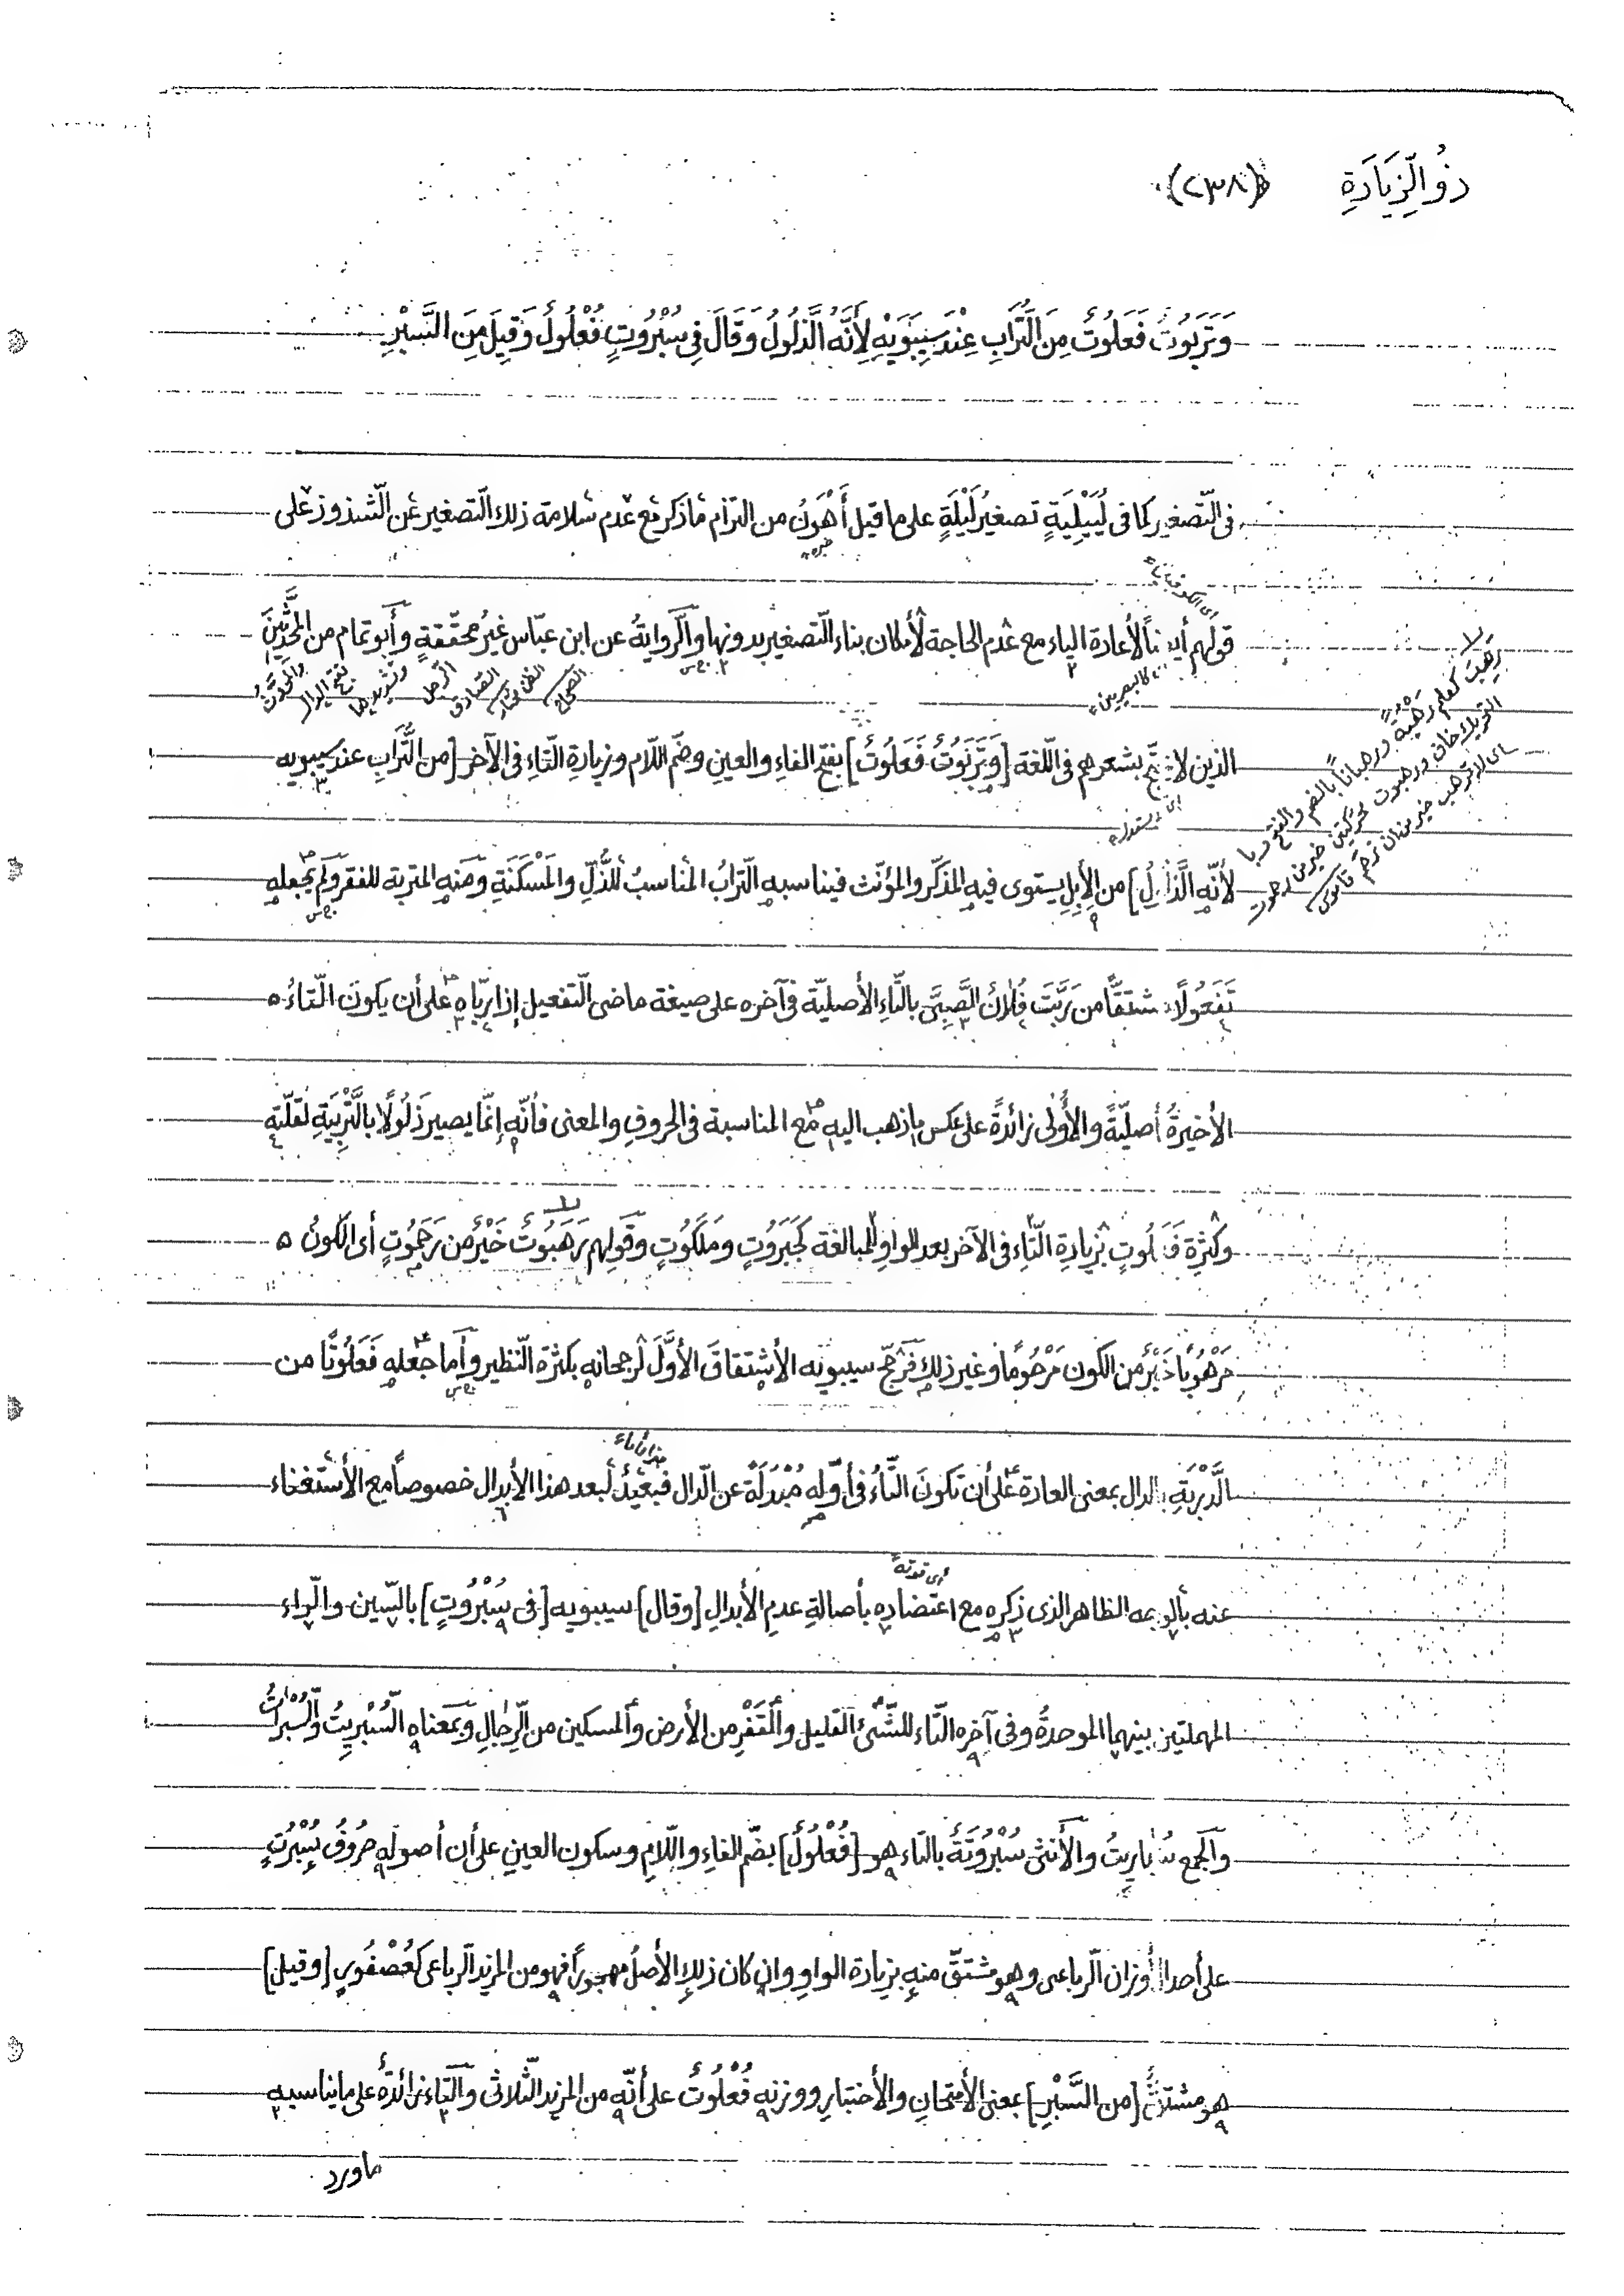 ذُو الزِّيَادَةِ (٢٣٨)
وَتَرَبُوتٌ فَعَلُوتٌ مِنَ التُّرَابِ عِنْدَ سِيبَوَيْهِ لِأَنَّهُ الذَّلُولُ وَقَالَ فِي سُبْرُوتٍ فُعْلُولٌ وَقِيلَ مِنَ السَّبْرِ
في التّصغير كما في لُيَيْلِيَةٍ تصغيرُ لَيْلَةٍ على ما قيل أَهْوَنُ من التزام ما ذكر مع عدم سلامة ذلك التصغير عن الشذوذ على
قولهم أيضاً لأعادة الياء مع عدم الحاجة لأمكان بناء التّصغير بدونها والرّوايةُ عن ابن عبّاس غيرُ محقّقةٍ وأبو تمام من المحدَثينَ
الذين لا يحتجّ بشعرهم في اللّغة [وَتَرَبَوُتٌ فَعَلُوتٌ] بفتح الفاءِ والعينِ وضمّ اللّام وزيادةِ التّاءِ في الآخر [من التُّرَابِ عند سيبويه
لأنّه الذَّلُولُ] من الأِبِلِ يستوى فيه المذكّر والمؤنّث فيناسبه التّرابُ المناسبُ للذُّلِّ والمَسْكَنَةِ ومنه المتربة للفقر ولم يجعله
تَفَعُولًا مشتقًّا من رَبَّتَ فُلانٌ الصَّبِيَّ بالتّاءِ الأصليّة في آخره على صيغة ماضى التّفعيل إذا ربّاه على أن يكونَ التاءُ ه
الأخيرةُ أصليّةً والأُولى زائدةً على عكس ما ذهب اليه مع المناسبة في الحروفِ والمعنى فأنّه إنّما يصير ذَلُولًا بالتَّرْبِيَةِ لقلّته
وكثرة فَعَلُوتٍ بزيادةِ التّاءِ في الآخر بعد الواوِ للمبالغة كَجَبَرُوتٍ ومَلَكُوتٍ وقولهم رَهَبُوتٌ خَيْرٌ من رَحَمُوتٍ أى الكونُ ه
مَرْهُوبًا خَيْرٌ من الكون مَرْحُومًا وغير ذلك فرَجّح سيبويه الأشتقاقَ الأوَّلَ لرجحانه بكثرة النّظير وأما جعله فَعَلُوتًا من
الدَّرْبَةِ بالدال بمعنى العادة على أن تكونَ التّاءُ في أوّله مُبْدَلَةً عن الدّال فبعيدٌ لبعد هذا الأبدال خصوصاً مع الأستغناء
عنه بالوجه الظاهر الذى ذكره مع اعتضاده بأصالةِ عدمِ الأبدالِ [وقال] سيبويه [في سُبْرُوتٍ] بالسّين والرّاء
المهملتين بينهما الموحدةُ وفي آخره التّاء للشّئ القليل والقَفْرِ من الأرض والمسكين من الرّجالِ وبمعناه السِّبْرِيتُ والسُّبْرَاتُ
والجمع سَبَارِيتُ والأنثى سُبْرُوتَةٌ بالتاء هو [فُعْلُولٌ] بضّم الفاءِ واللّامِ وسكون العينِ على أن أصوله حروفُ سُبْرُتٍ
على أحد أوزان الرّباعى وهو مشتقّ منه بزيادة الواوِ وان كان ذلك الأصلُ مهجوراً فهو من المزيد الرباعى كعُصْفُورٍ [وقيل]
هو مشتقّ [من السَّبْرِ] بمعنى الأمتحانِ والأختبارِ ووزنه فُعْلُوتٌ على أنّه من المزيد الثّلاثى والتّاء زائدةٌ على ما يناسبه
ما ورد